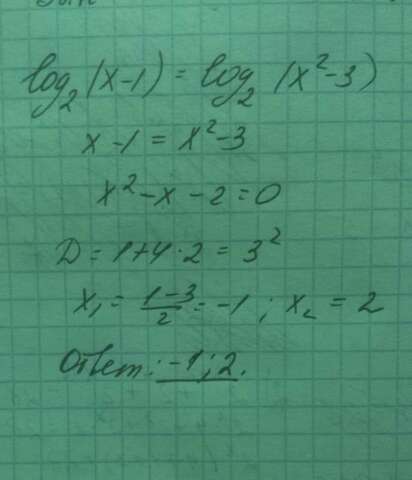 log₂(x-1) = log₂(x²-3)
x-1 = x²-3
x²-x-2=0
D=1+4·2=3²
x₁ = (1-3)/2 = -1; x₂ = 2
Ответ: -1; 2.